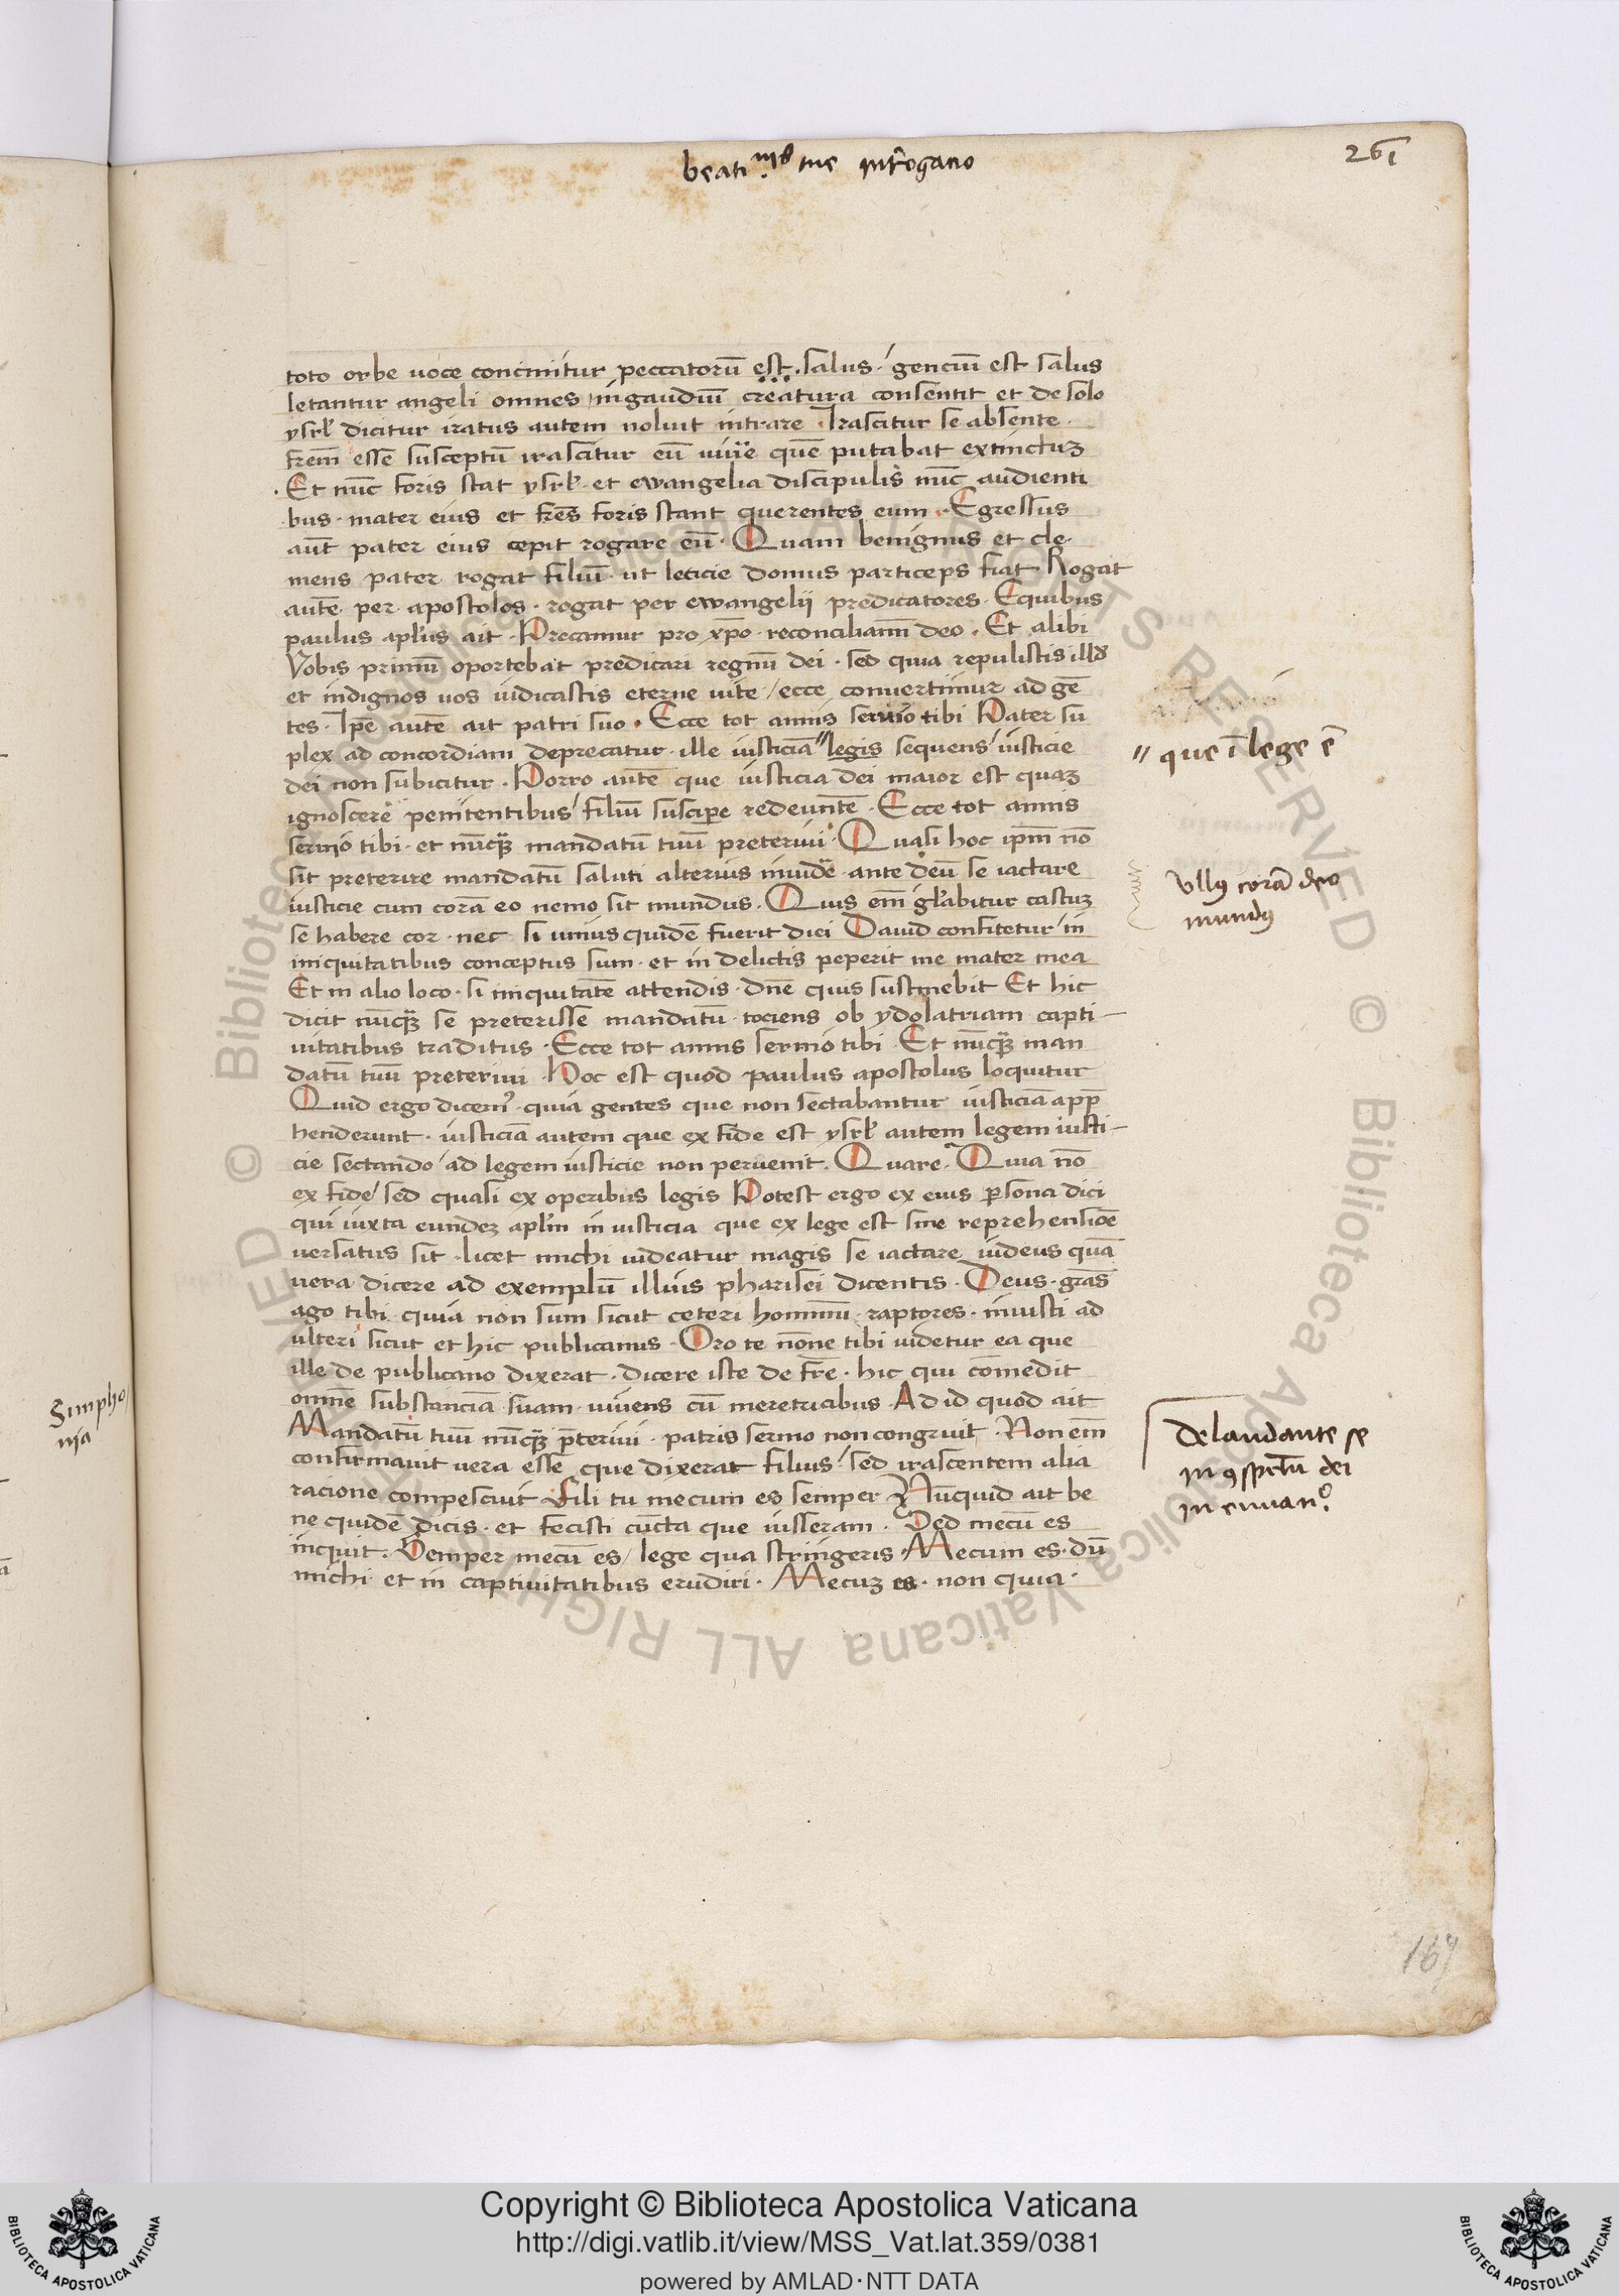 beati.nis tue interogacio
261
toto orbe uoce concinitur peccatorū est. salus. genciū est salus
letantur angeli omnes / in gaudiū creatura consentit et de solo
ysrl' dicitur iratus autem noluit intrare. Irascitur se absente.
frem̄ esse susceptū irascitur eū uiuẽ quē putabat extinctuꝫ
. Et nūc foris stat ysrl'. et ewangelia discipulis nūc audienti
bus. mater eius et fres̄ foris stant querentes eum. Egressus
aut̄ pater eius cepit rogare eū. Quam benignus et cle.
mens pater rogat filiū. ut leticie domus particeps fiat. Rogat
autē per apostolos. rogat per ewangelij predicatores. Equibus
paulus apl'us ait. Precamur pro xp̄o. reconciliamī deo. Et alibi
Vobis primū oportebat predicari regnū dei. sed quia repulistis illđ
et indignos uos iudicastis eterne uite / ecce conuertimur ad gē
tes. Ip̄e autē ait patri suo. Ecce tot annis seruio tibi Pater su
plex ad concordiam deprecatur. ille iusticiā " legis sequens / iusticie
" que ī lege ē
dei non subicitur. Porro autē que iusticia dei maior est quaꝫ
ignoscere penitentibus / filiū suscipe redeuntē. Ecce tot annis
seruio tibi. et nūcꝗ̄ mandatū tuū preteriui. Quasi hoc ip̄m nō
sit preterire mandatū saluti alterius inuidẽ. ante deū se iactare
iusticie cum corā eo nemo sit mundus. Quis em̄ gl'abitur castuꝫ
Vllꝰ corā deo
mundꝰ
se habere cor. nec si unius quidē fuerit diei Dauid confitetur / in
iniquitatibus conceptus sum. et in delictis peperit me mater mea
Et in alio loco. si iniquitatē attendis. dn̄e quis sustinebit Et hic
dicit nūcꝗ̄ se preterisse mandatū. tociens ob ydolatriam capti-
uitatibus traditus. Ecce tot annis seruio tibi Et nūcꝗ̄ man
datū tuū preteriui. Hoc est quod paulus apostolus loquitur
Quid ergo dicemꝰ. quia gentes que non sectabantur iusticiā app̄
henderunt. iusticiā autem que ex fide est ysrl' autem legem iusti-
cie sectando / ad legem iusticie non peruenit. Quare. Quia nō
ex fide / sed quasi ex operibus legis Potest ergo ex eius ꝑsona dici
qui iuxta eundeꝫ apl'm in iusticia que ex lege est sine reprehensiōe
uersatus sit. licet michi uideatur magis se iactare iudeus quā
uera dicere ad exemplū illius pharisei dicentis. Deus. gras̄
ago tibi. quia non sum sicut ceteri hominū raptores. iniusti ad
ulteri sicut et hic publicanus. Oro te nōne tibi uidetur ea que
ille de publicano dixerat. dicere iste de fr̄e. hic qui cōmedit
omnē substanciā suam. uiuens cū meretricibus. Ad id quod ait
Mandatū tuū nūcꝗ̄ p̄teriui. patris sermo non congruit. Non em̄
confirmauit uera esse que dixerat filius / sed irascentem alia
racione compescuit. Fili tu mecum es semper Nūquid ait be
ne quidē dicis. et fecisti cūcta que iusseram. Sed mecū es
inquit. Semper mecū es / lege qua stringeris. Mecum es. dū
michi et in captiuitatibus erudiri. Mecuꝫ es. non quia.
De laudante se
in ꝯspc̄tu dei
Simpho/
nia
167
Copyright © Biblioteca Apostolica Vaticana
http://digi.vatlib.it/view/MSS_Vat.lat.359/0381
powered by AMLAD·NTT DATA
BIBLIOTECA APOSTOLICA VATICANA
BIBLIOTECA APOSTOLICA VATICANA